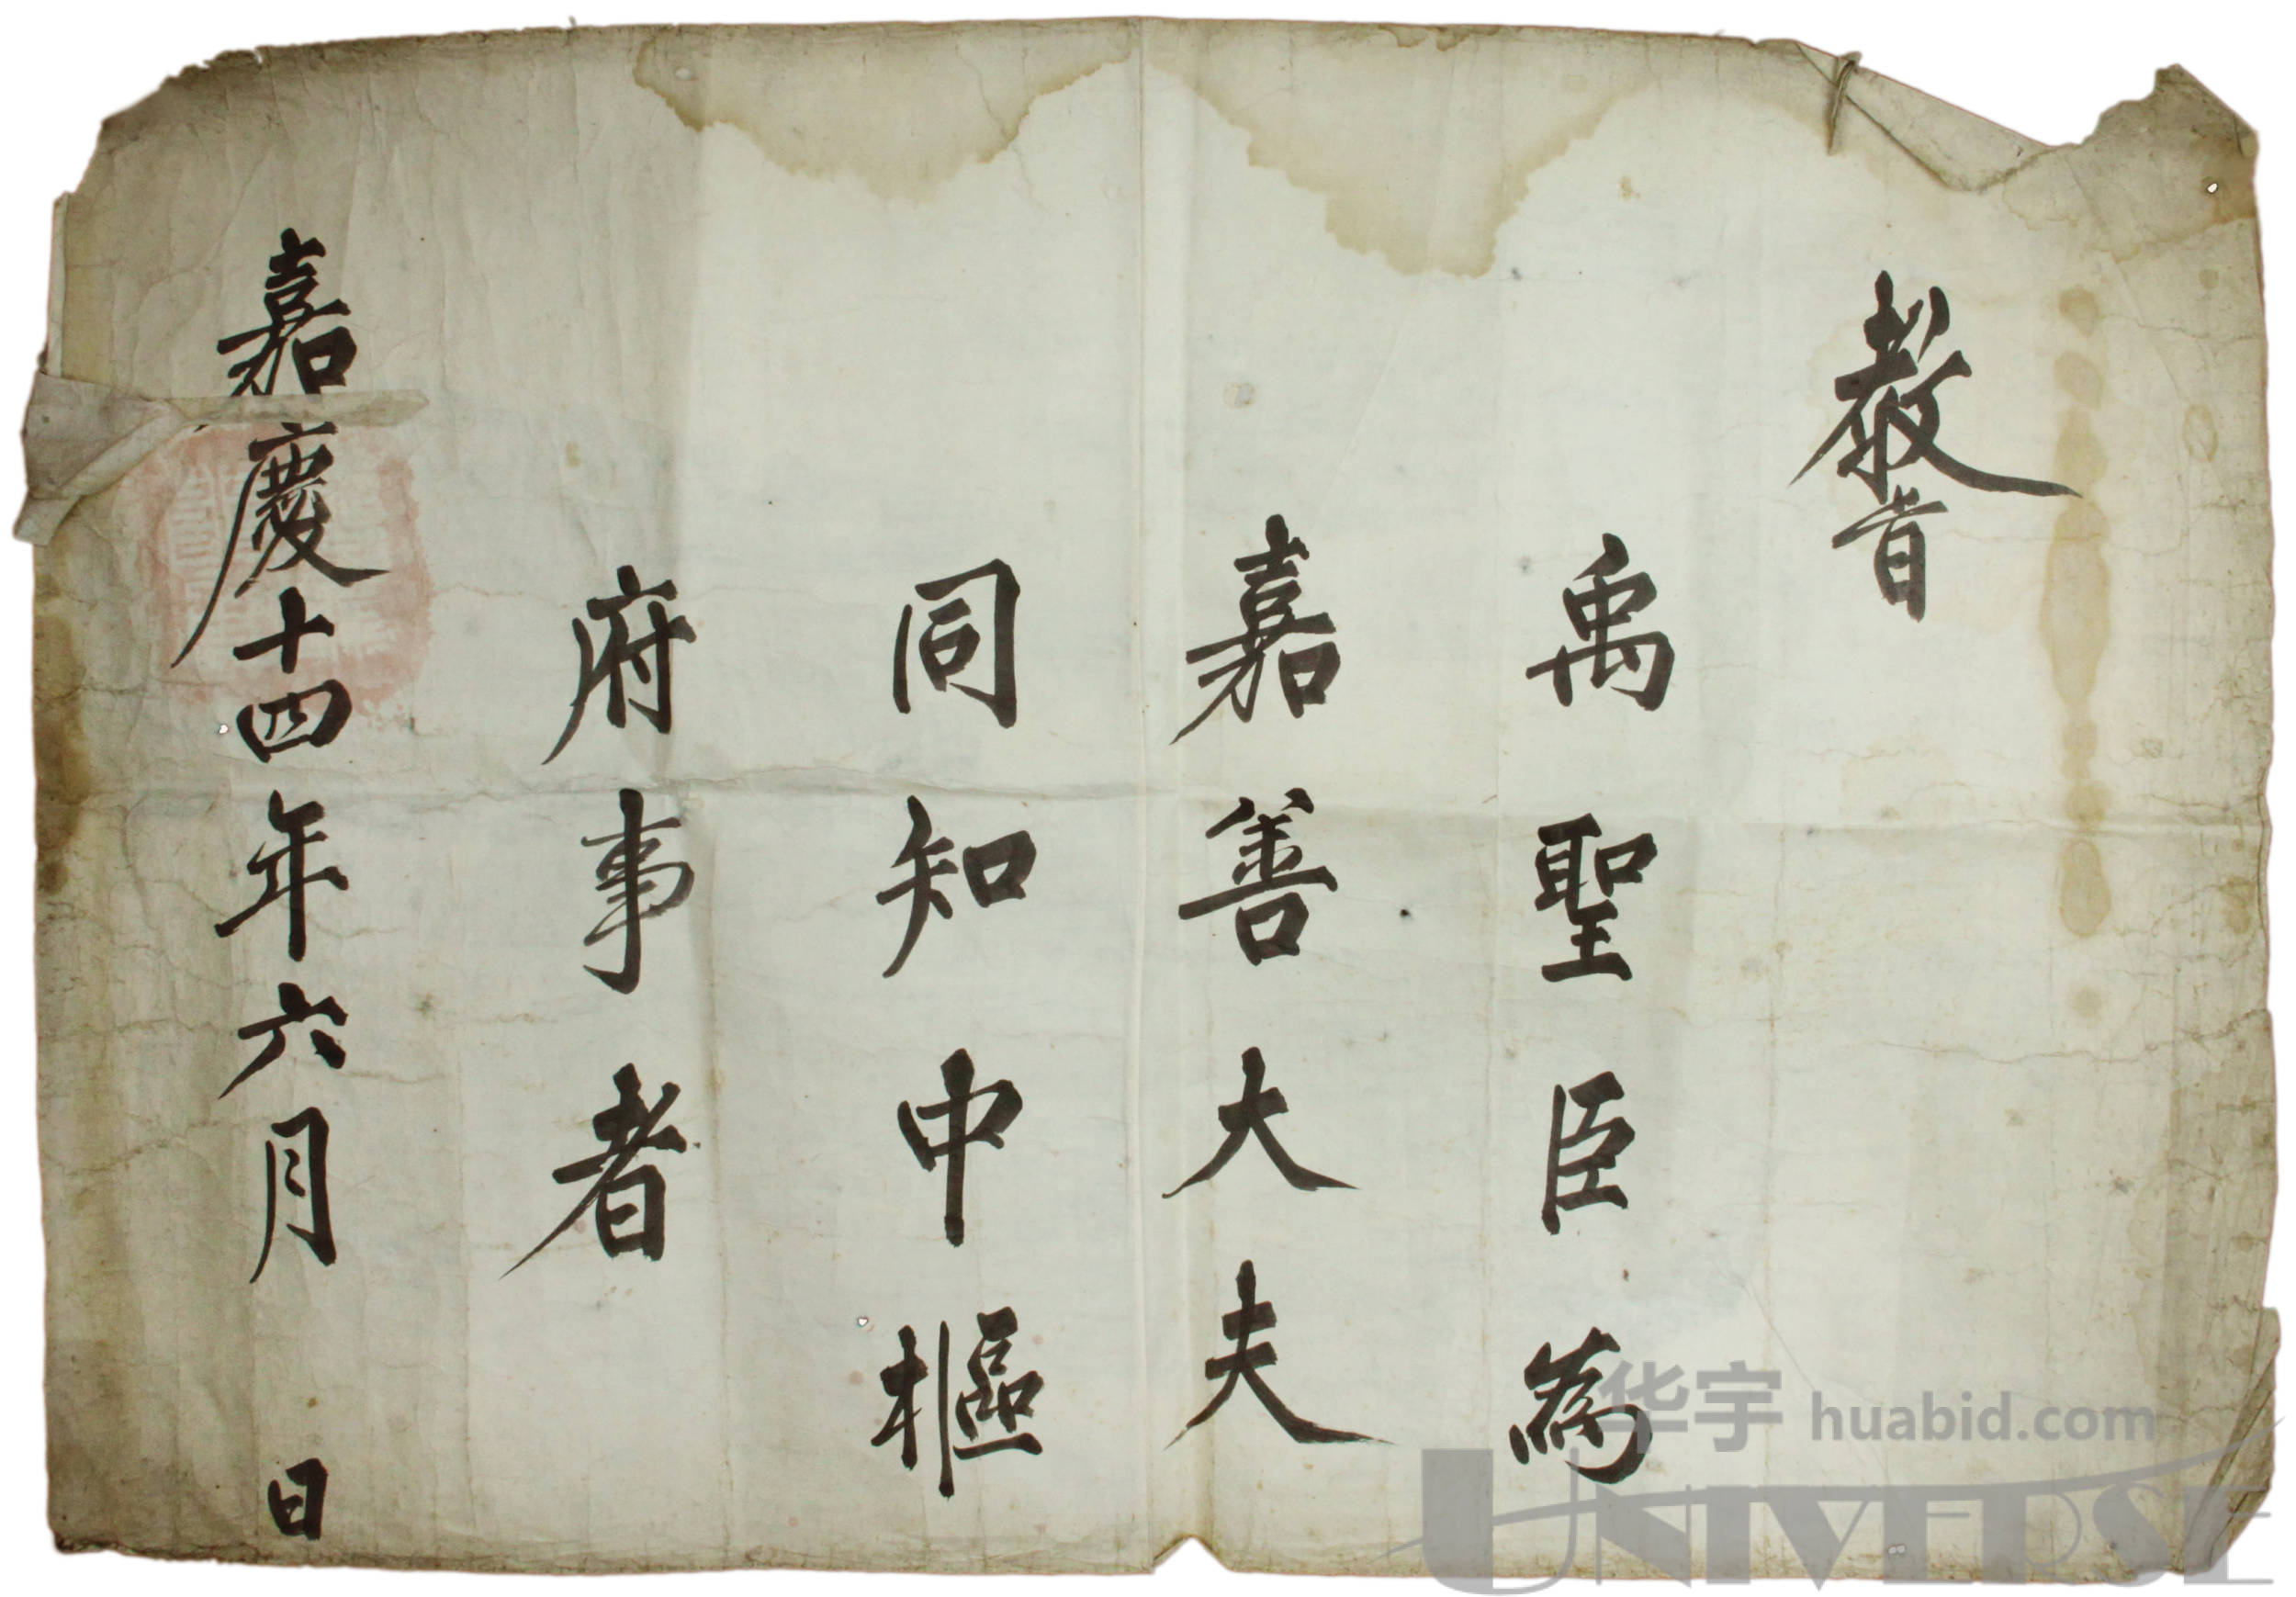 教旨
禹聖臣為
嘉善大夫
同知中樞
府事者
嘉慶十四年六月 日
华宇 huabid.com
UNIVERSE